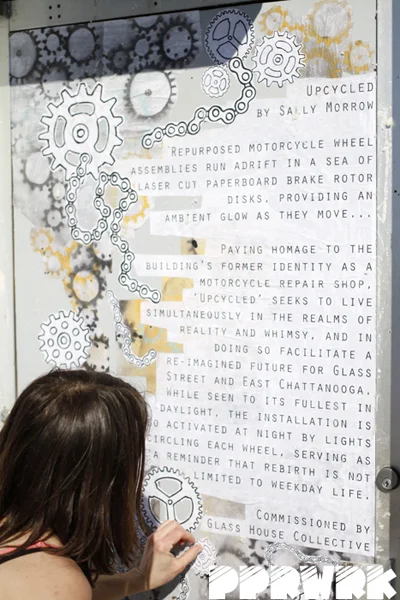 UPCYCLED
BY SALLY MORROW
REPURPOSED MOTORCYCLE WHEEL
ASSEMBLIES RUN ADRIFT IN A SEA OF
LASER CUT PAPERBOARD BRAKE ROTOR
DISKS, PROVIDING AN
AMBIENT GLOW AS THEY MOVE...
PAYING HOMAGE TO THE
BUILDING'S FORMER IDENTITY AS A
MOTORCYCLE REPAIR SHOP,
'UPCYCLED' SEEKS TO LIVE
SIMULTANEOUSLY IN THE REALMS OF
REALITY AND WHIMSY, AND IN
DOING SO FACILITATE A
RE-IMAGINED FUTURE FOR GLASS
STREET AND EAST CHATTANOOGA.
WHILE SEEN TO ITS FULLEST IN
DAYLIGHT, THE INSTALLATION IS
SO ACTIVATED AT NIGHT BY LIGHTS
CIRCLING EACH WHEEL, SERVING AS
A REMINDER THAT REBIRTH IS NOT
LIMITED TO WEEKDAY LIFE.
COMMISSIONED BY
GLASS HOUSE COLLECTIVE
PPRWRK